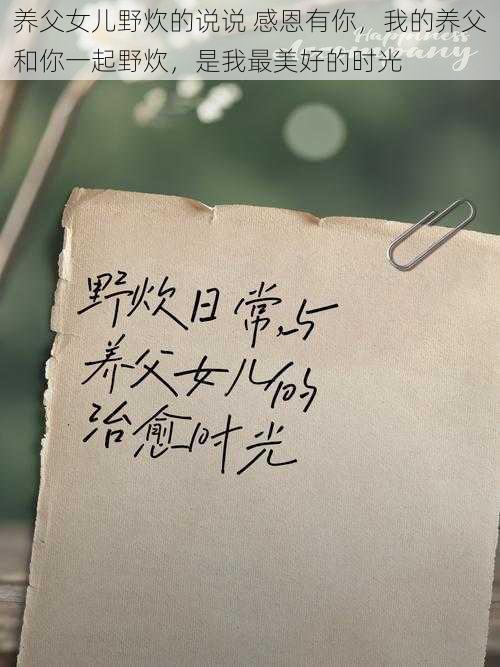 养父女儿野炊的说说 感恩有你，我的养父
和你一起野炊，是我最美好的时光
Happiness
野炊日常,与
养父女儿的
治愈时光